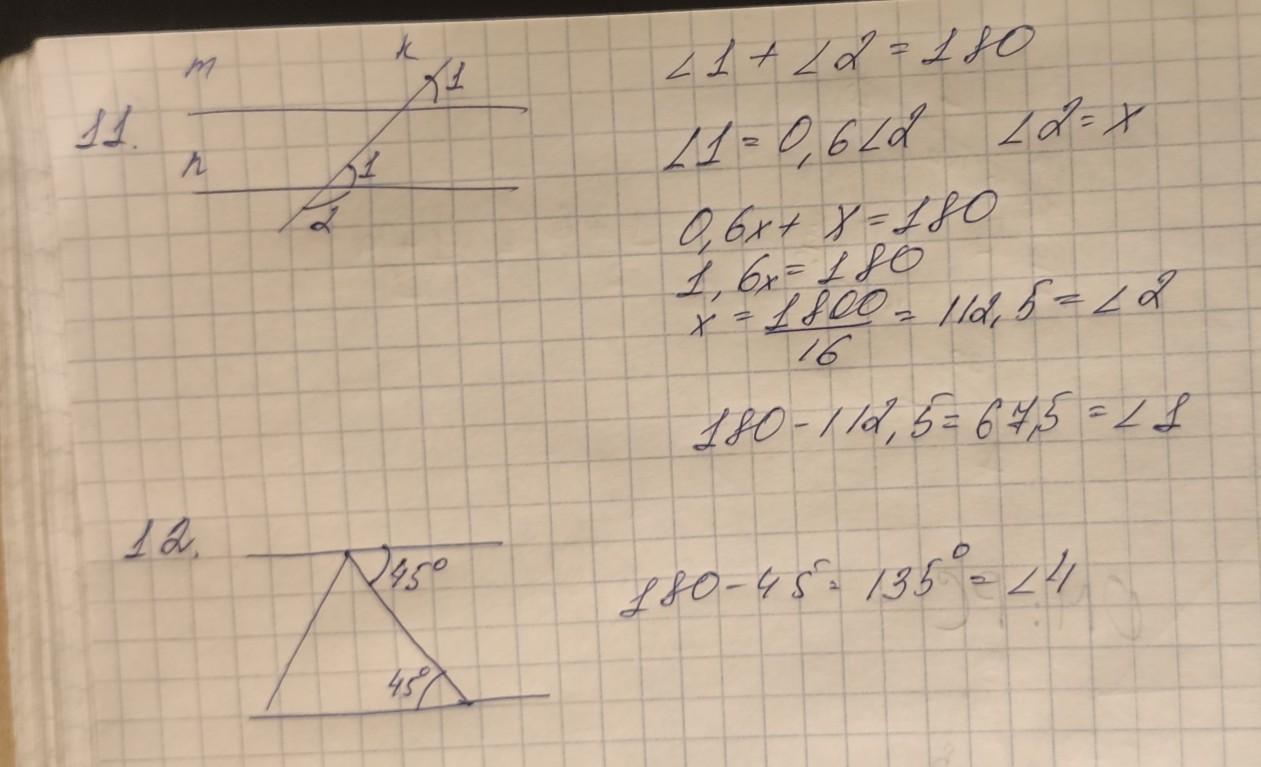 m k 1
11.
n 1
2
∠1 + ∠2 = 180
∠1 = 0,6∠2 ∠2 = x
0,6x + x = 180
1,6x = 180
x = 1800/16 = 112,5 = ∠2
180 - 112,5 = 67,5 = ∠1
12.
45°
45°
180 - 45 = 135° = ∠4